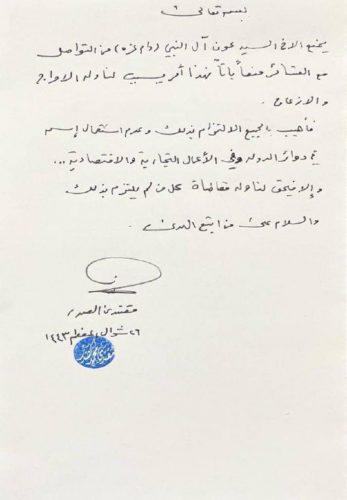 بسمه تعالى
يمنع الاخ السيد عون آل النبي (دام عزه) من التواصل
مع العشائر منعاً باتاً فهذا أمر يسبب لنا وله الاحراج
والازعاج.
فأهيب بالجميع الالتزام بذلك وعدم استعمال إسمه
في دوائر الدولة وفي الأعمال التجارية والاقتصادية...
وإلا فيحق لنا وله مقاضاة كل من لم يلتزم بذلك
والسلام على من اتبع الهدى.
مقتدى الصدر
٢٦ شوال المعظم ١٤٤٣